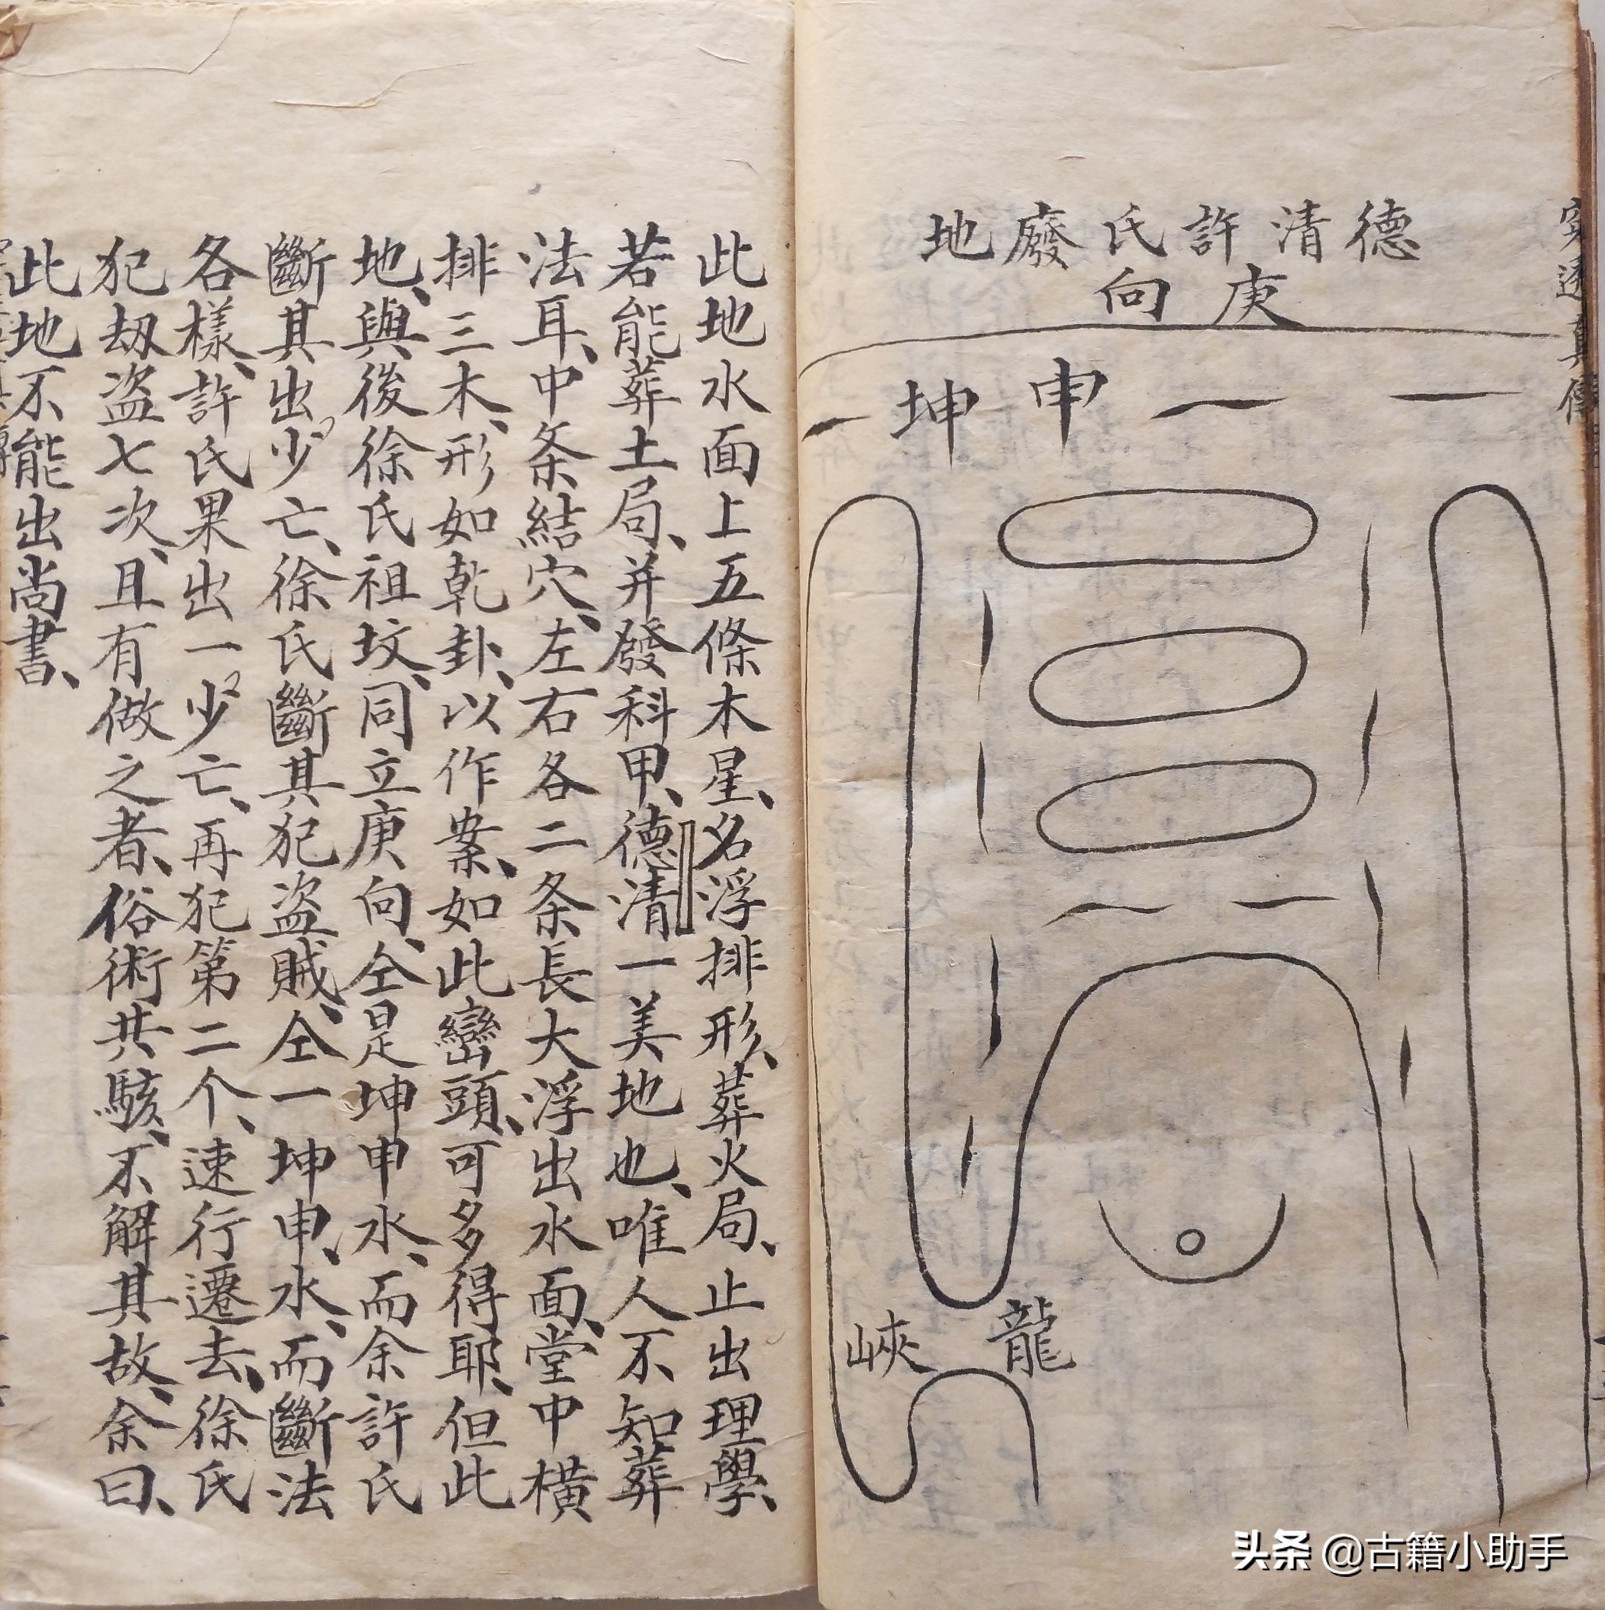 穿透真傳
德清許氏廢地
庚向
申坤
龍峽
此地水面上五條木星、名浮排形、葬火局、止出理學、
若能葬土局、并發科甲、德清一美地也、唯人不知葬
法耳、中条結穴、左右各二条長大浮出水面、堂中橫
排三木、形如乾卦、以作案、如此巒頭、可多得耶、但此
地、與後徐氏祖坟、同立庚向、仝是坤申水、而余許氏
斷其出少亡、徐氏斷其犯盜賊、仝一坤申、水、而斷法
各樣、許氏果出一少亡、再犯第二个、速行遷去、徐氏
犯劫盜七次、且有做之者、俗術共駭、不解其故、余曰、
此地不能出尚書、
头条 @古籍小助手